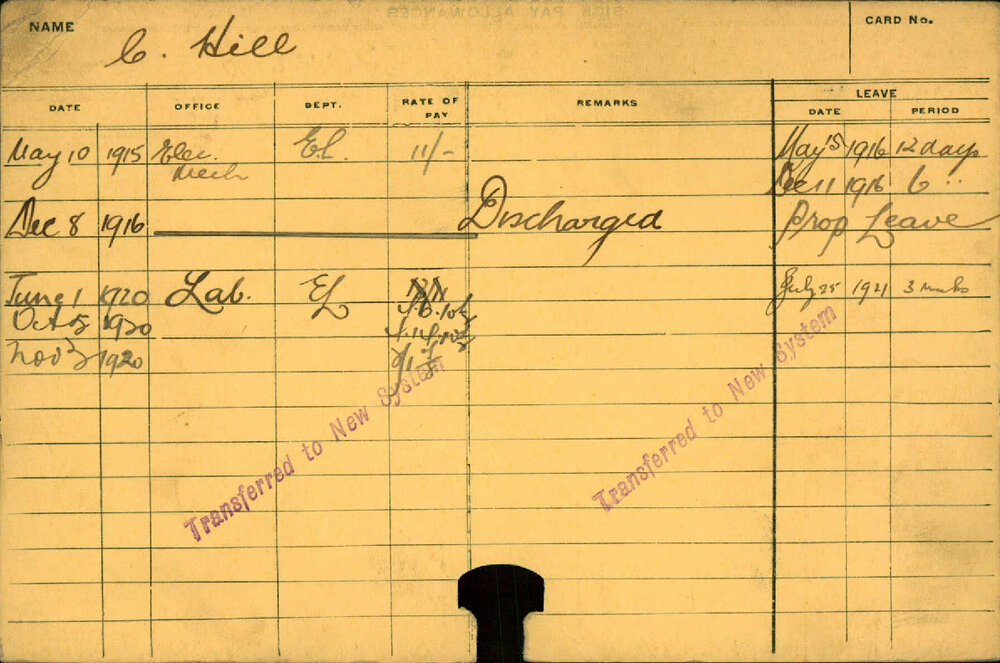 NAME C. Hill CARD No.
DATE OFFICE DEPT. RATE OF PAY REMARKS LEAVE
DATE PERIOD
May 10 1915 Elec. El. 11/- May 15 1916 12 days
Mech
Dec 11 1916 6 "
Dec 8 1916 Discharged Prop Leave
June 1 1920 Lab. El July 25 1921 3 weeks
Oct 5 1920
Nov 3 1920
Transferred to New System
Transferred to New System